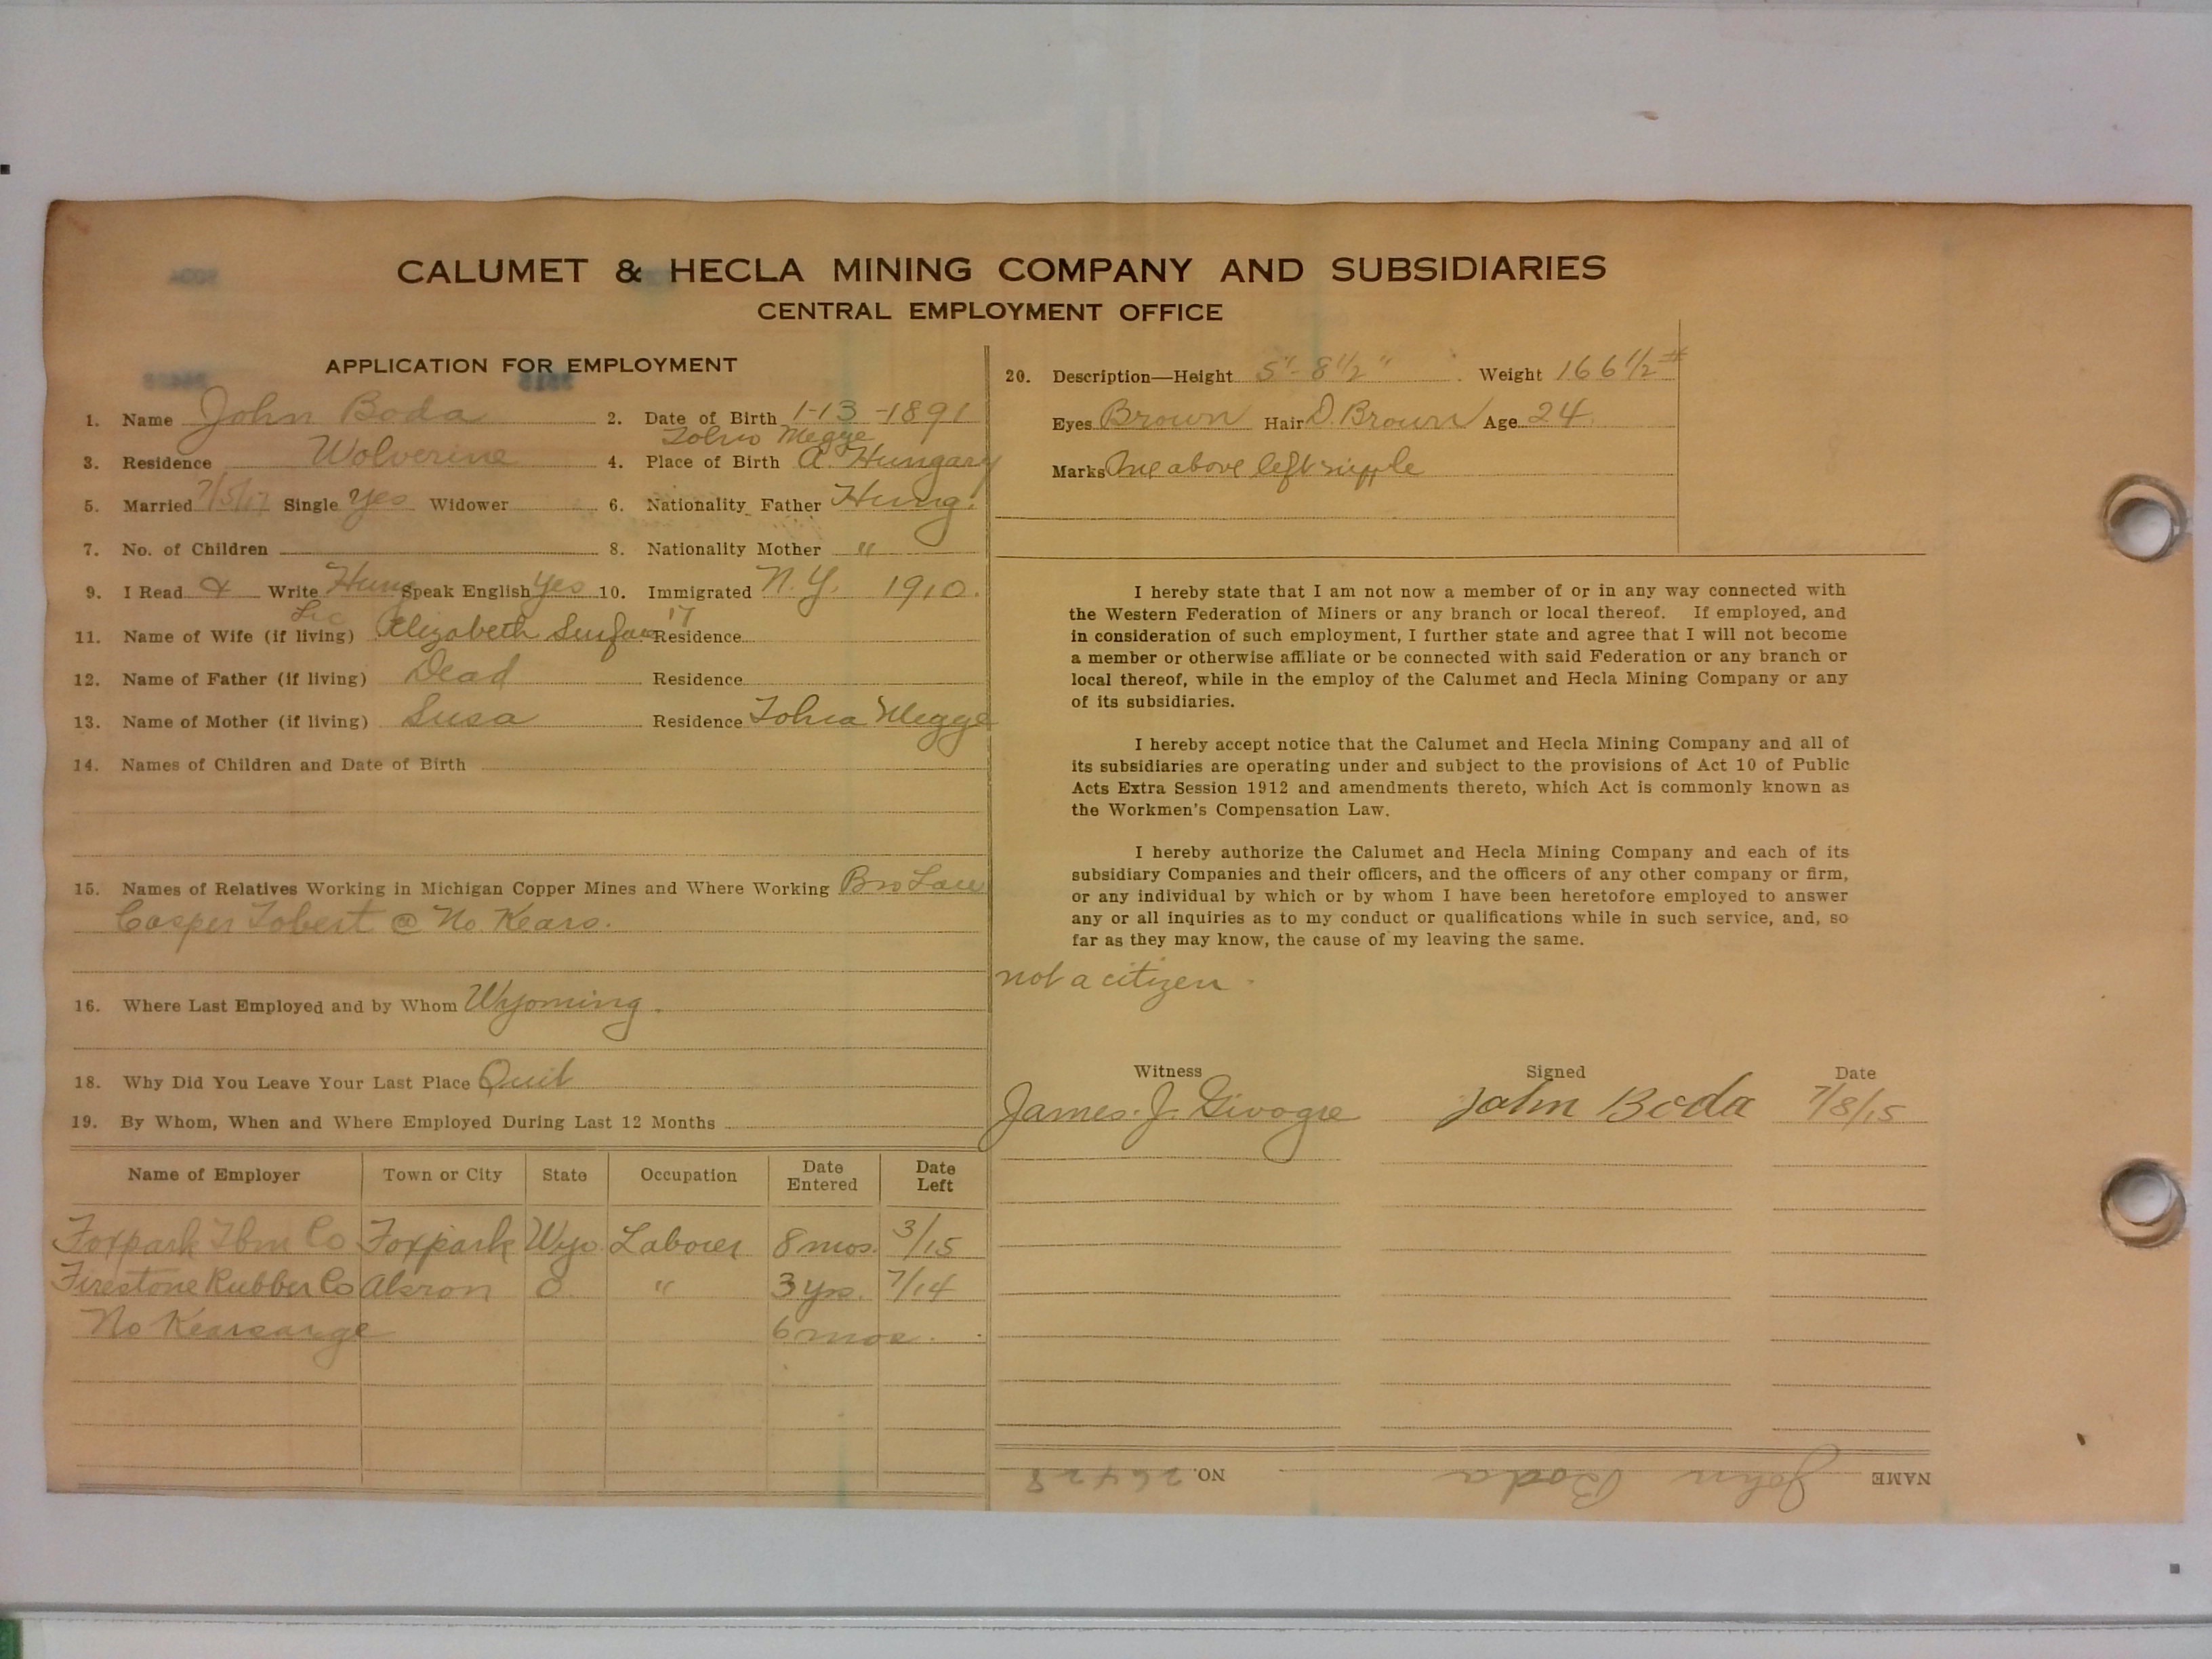 CALUMET & HECLA MINING COMPANY AND SUBSIDIARIES
CENTRAL EMPLOYMENT OFFICE
APPLICATION FOR EMPLOYMENT
1. Name John Boda 2. Date of Birth 1-13-1891
3. Residence Wolverine 4. Place of Birth Tolna Megye A. Hungary
5. Married 7/5/17 Single Yes Widower 6. Nationality Father Hung.
7. No. of Children 8. Nationality Mother "
9. I Read & Write Hung Speak English Yes 10. Immigrated N.Y. 1910.
11. Name of Wife (if living) Lic Elizabeth 17 Residence
12. Name of Father (if living) Dead Residence
13. Name of Mother (if living) Susa Residence Tolna Megye
14. Names of Children and Date of Birth
15. Names of Relatives Working in Michigan Copper Mines and Where Working Bro Law
Casper Tobert @ No. Kears.
16. Where Last Employed and by Whom Wyoming.
18. Why Did You Leave Your Last Place Quit
19. By Whom, When and Where Employed During Last 12 Months
Name of Employer Town or City State Occupation Date Entered Date Left
Foxpark Tbm Co Foxpark Wyo. Laborer 8 mos. 3/15
Firestone Rubber Co Akron O. " 3 yrs. 7/14
No Kearsarge 6 mos.
20. Description—Height 5'-8 1/2" Weight 166 1/2 #
Eyes Brown Hair D. Brown Age 24
Marks above left nipple
I hereby state that I am not now a member of or in any way connected with
the Western Federation of Miners or any branch or local thereof. If employed, and
in consideration of such employment, I further state and agree that I will not become
a member or otherwise affiliate or be connected with said Federation or any branch or
local thereof, while in the employ of the Calumet and Hecla Mining Company or any
of its subsidiaries.
I hereby accept notice that the Calumet and Hecla Mining Company and all of
its subsidiaries are operating under and subject to the provisions of Act 10 of Public
Acts Extra Session 1912 and amendments thereto, which Act is commonly known as
the Workmen's Compensation Law.
I hereby authorize the Calumet and Hecla Mining Company and each of its
subsidiary Companies and their officers, and the officers of any other company or firm,
or any individual by which or by whom I have been heretofore employed to answer
any or all inquiries as to my conduct or qualifications while in such service, and, so
far as they may know, the cause of my leaving the same.
not a citizen.
Witness Signed Date
James. J. John Boda 7/8/15
NAME John Boda NO. 26428